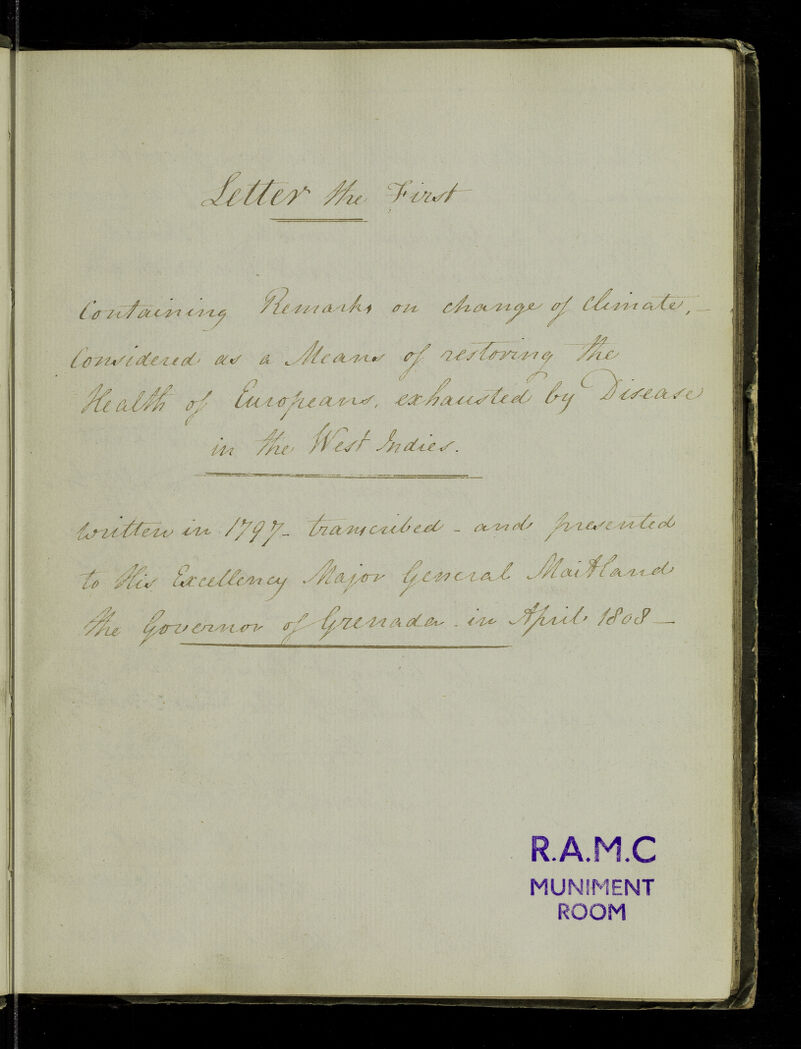 Letter the First
Containing Remarks on change of Climate, -
Considered as a Means of restoring the
Health of Europeans, exhausted by Disease
in the West Indies.
written in 1797 - transcribed - and presented
to His Excellency Major General Maitland
the Governor of Grenada - in April 1808 -
R.A.M.C
MUNIMENT
ROOM